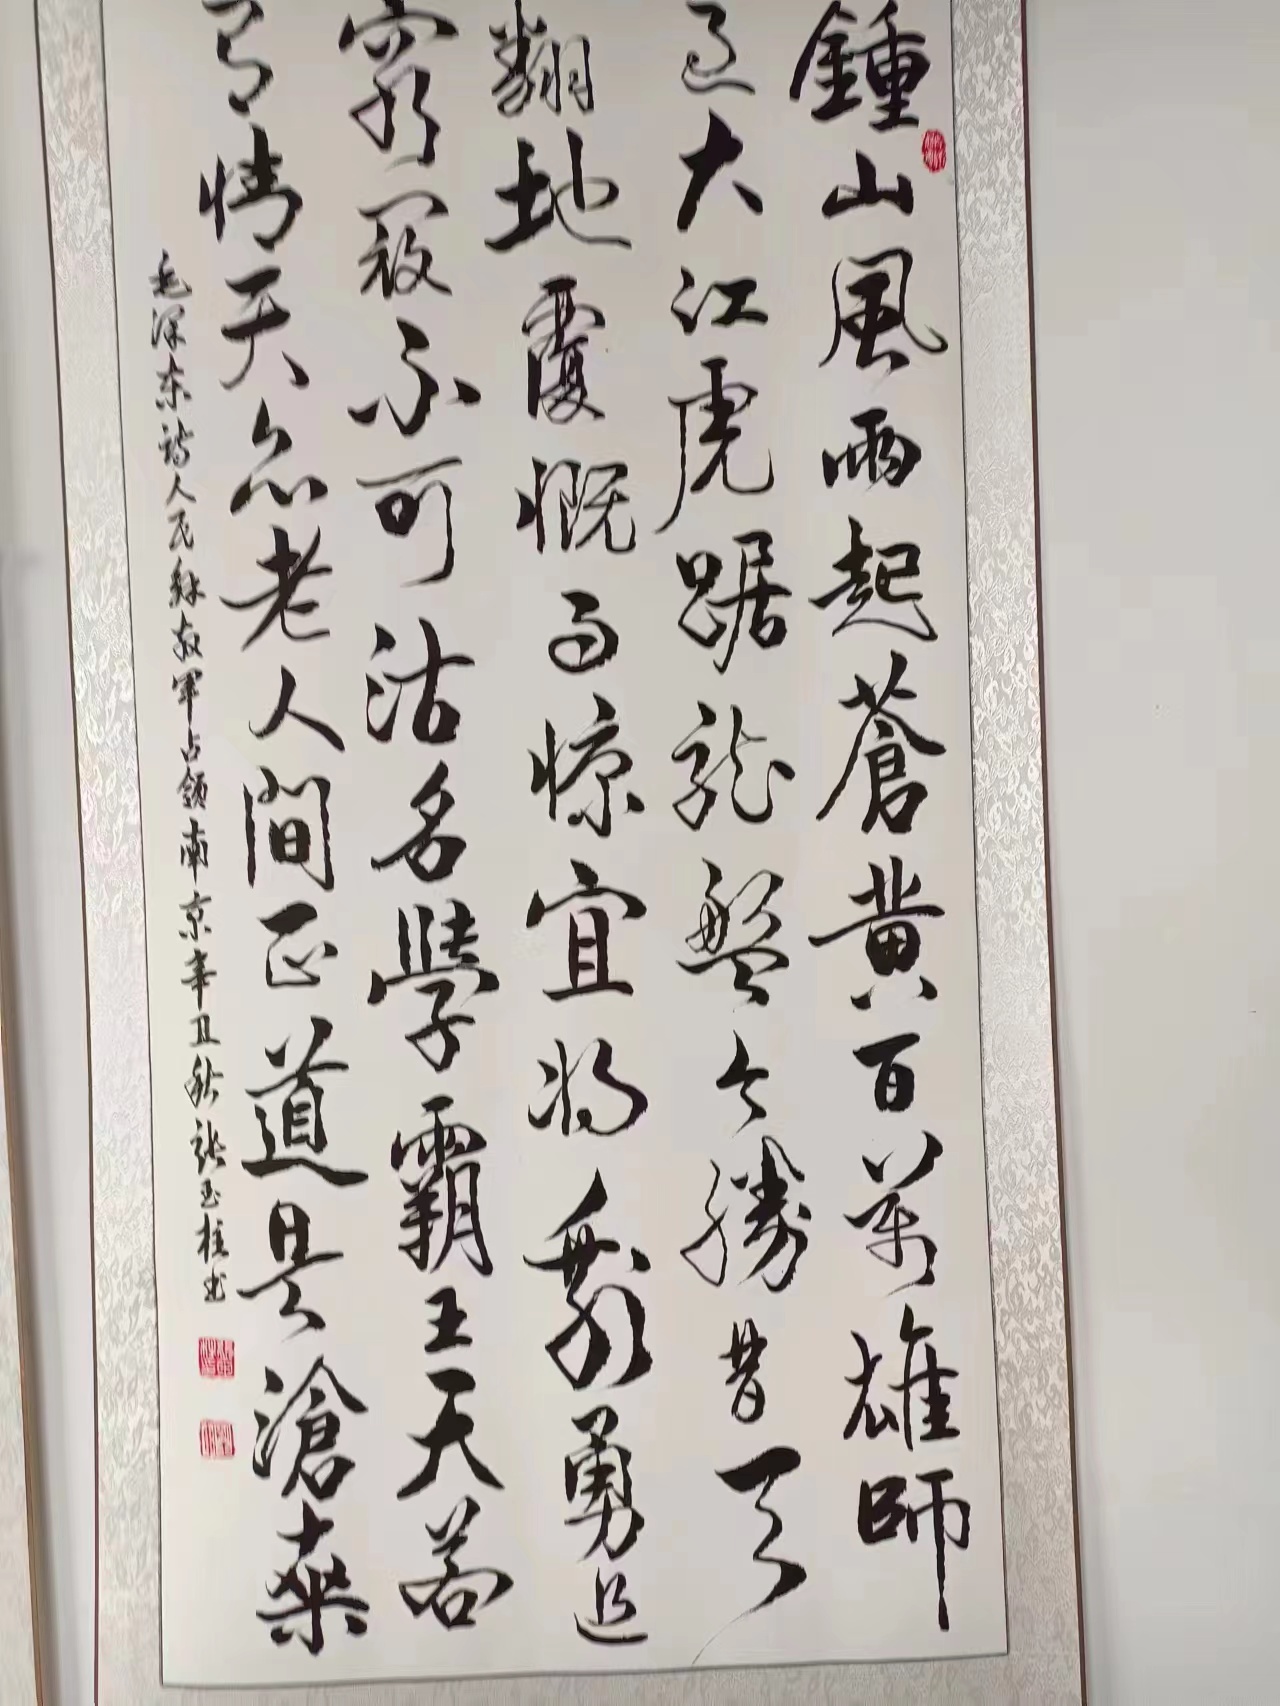 鍾山風雨起蒼黃百萬雄師
過大江虎踞龍盤今勝昔天
翻地覆慨而慷宜將剩勇追
窮寇不可沽名學霸王天若
有情天亦老人間正道是滄桑
毛澤東詩人民解放軍占領南京辛丑秋張玉柱書